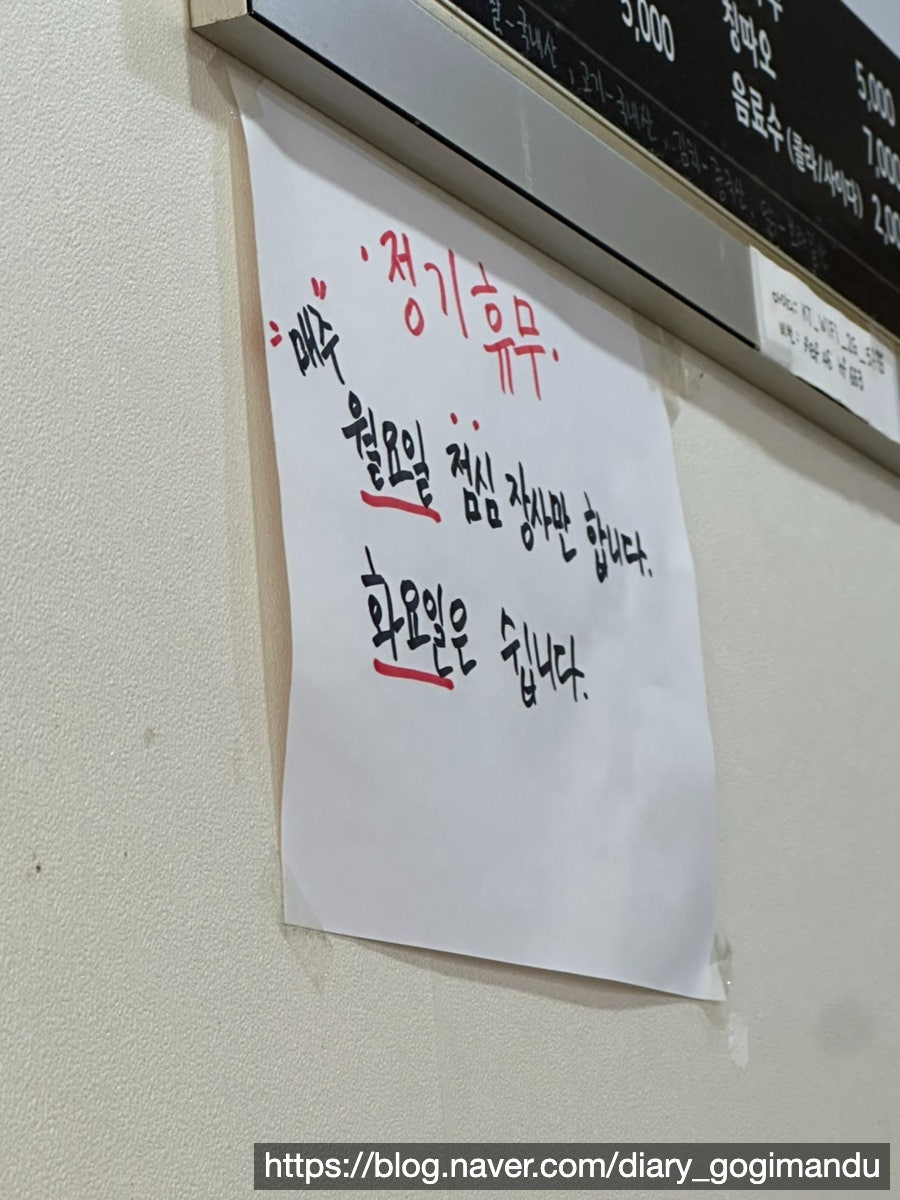 5,000
칭따오
5,000
음료수 (콜라/사이다)
7,000
2,0
정기휴무
매주
월요일 점심 장사만 합니다.
화요일은 쉽니다.
https://blog.naver.com/diary_gogimandu